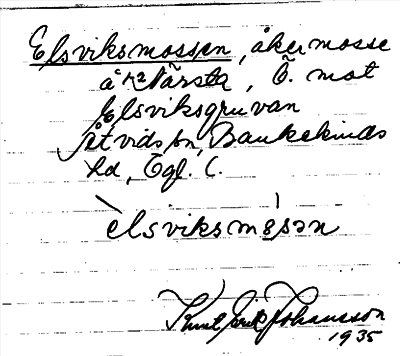 Elsviksmossen, åkermosse
å 1/2 Närsta, Ö. mot
Elsviksgruvan
Åtvids sn, Bankekinds
hd, Ögl. l.
èlsviksmósən
Knut Erik Johansson
1935